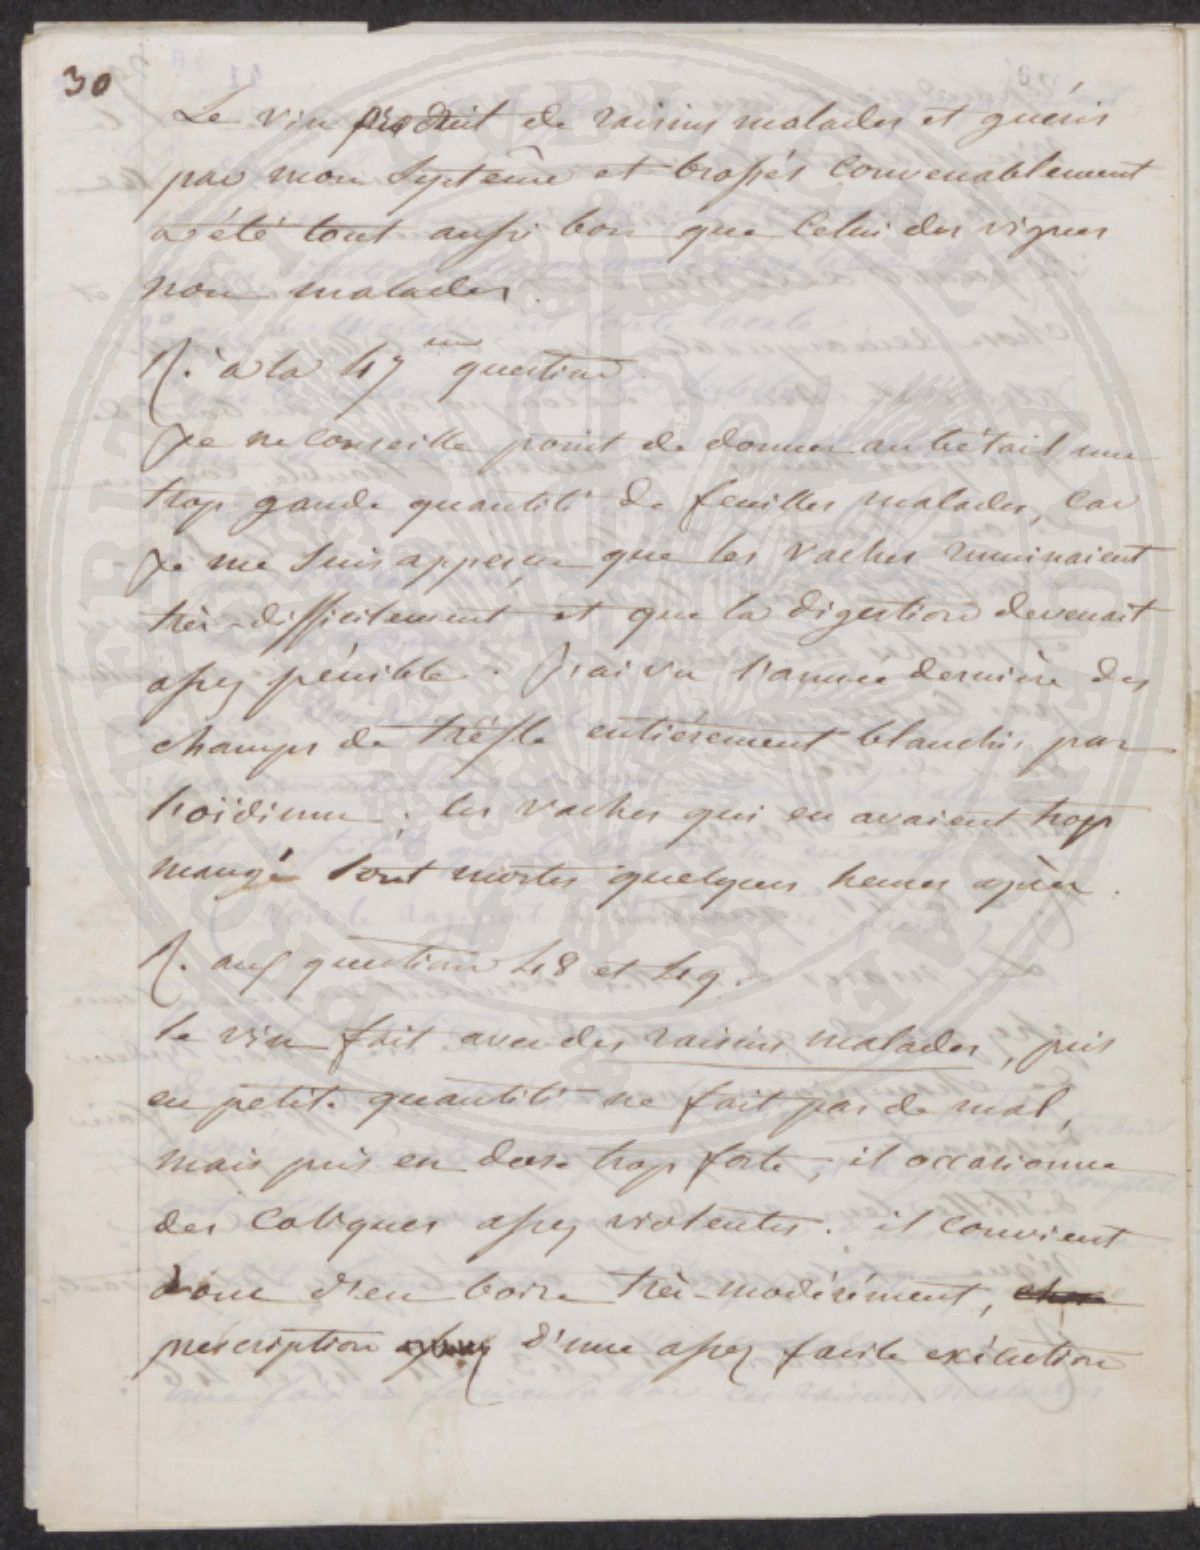 30
Le vin produit de raisins malades et guéris
par mon systême et brossés convenablement
a été tout aussi bon que celui des vignes
non malades.
R. à la 47 me question
Je ne conseille point de donner au bétail une
trop gande quantité de feuilles malades, car
je me suis apperçu que les vaches ruminaient
très-difficilement et que la digestion devenait
assez pénible. J'ai vu l'année dernière des
champs de trêfle entiérement blanchis par
l'oïdium; les vaches qui en avaient trop
mangé sont mortes quelques heures après.
R. aux questions 48 et 49.
le vin fait avec des raisins malades, pris
en petite quantité ne fait pas de mal,
mais pris en dose trop forte, il occasionne
des coliques assez violentes. il convient
donc d'en boire très-modérément,
préscription d'une assez facile exécution